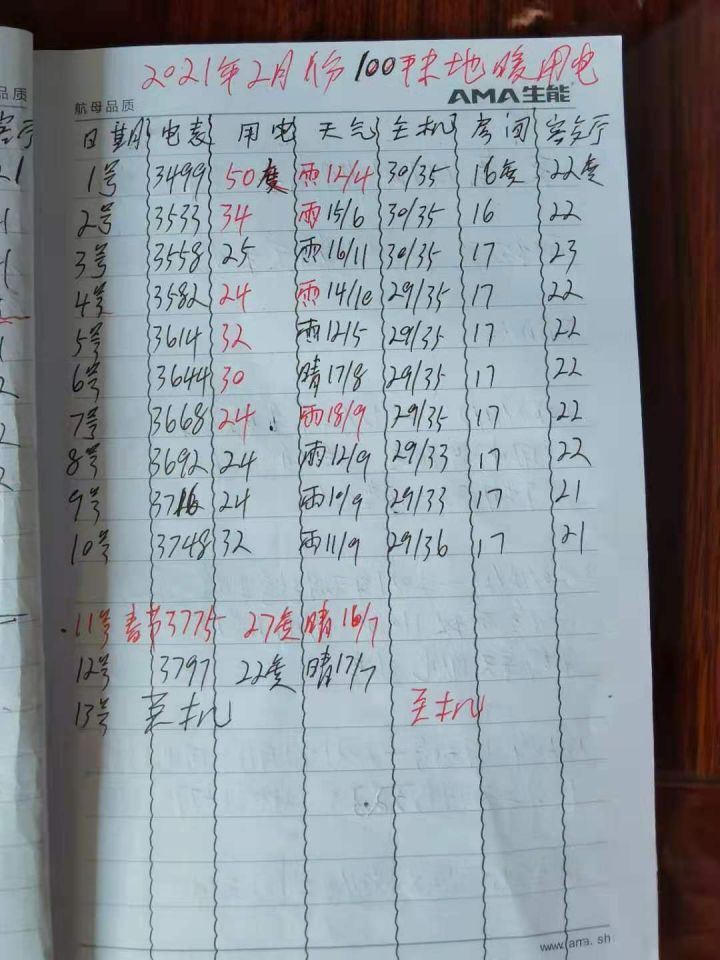 2021年2月份100平米地暖用电
航母品质 AMA生能
日期 电表 用电 天气 主机 房间 客厅
1号 3499 50度 雨12/4 30/35 16度 22度
2号 3533 34 雨15/6 30/35 16 22
3号 3558 25 雨16/11 30/35 17 23
4号 3582 24 雨14/10 29/35 17 22
5号 3614 32 雨12/5 29/35 17 22
6号 3644 30 晴17/8 29/35 17 22
7号 3668 24 雨18/9 29/35 17 22
8号 3692 24 雨12/9 29/33 17 22
9号 3716 24 雨10/9 29/33 17 21
10号 3748 32 雨11/9 29/36 17 21
11号 春节3775 27度 晴16/7
12号 3797 22度 晴17/7
13号 关机 主机
www.ama.sh
品质
客厅